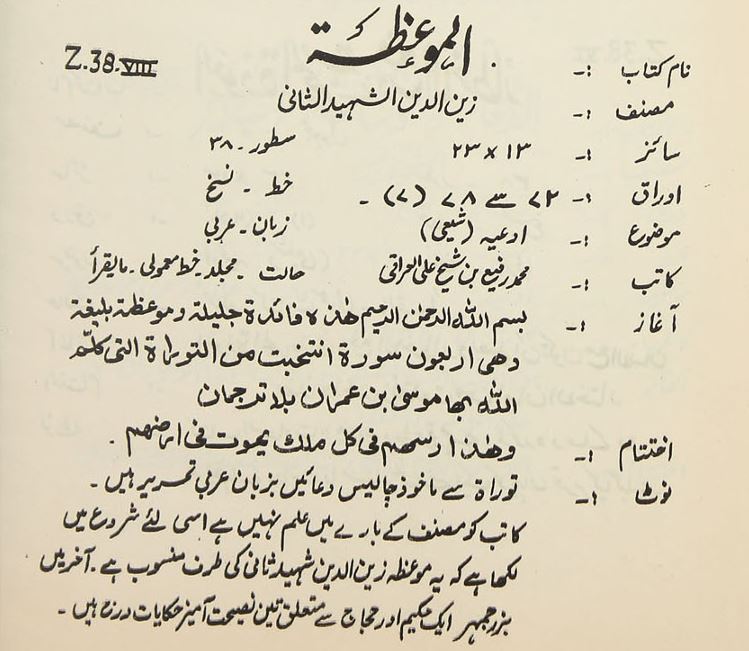 Z.38.VIII
نام کتاب :- الموعظۃ
مصنف :- زین الدین الشہید الثانی
سائز :- ۱۳ × ۲۳ سطور - ۳۸
اوراق :- ۷۲ سے ۷۸ (۷) - خط - نسخ
موضوع :- ادعیہ (شیعی) زبان - عربی
کاتب :- محمد رفیع بن شیخ علی العراقی حالت - مجلد - خط معمولی - مایقرأ
آغاز :- بسم اللہ الرحمن الرحیم ھٰذہ فائدۃ جلیلۃ وموعظۃ بلیغۃ
وھی اربعون سورۃ انتخبت من التوراۃ التی کلّم
اللہ بھا موسیٰ بن عمران بلا ترجمان
اختتام :- وھٰذا ارسھم فی کل ملک یموت فی ارضھم .
نوٹ :- توراۃ سے ماخوذ چالیس دعائیں بزبان عربی تحریر ہیں .
کاتب کو مصنف کے بارے میں علم نہیں ہے اسی لئے شروع میں
لکھا ہے کہ یہ موعظہ زین الدین شہید ثانی کی طرف منسوب ہے . آخر میں
بزرجمہر ایک حکیم اور حجاج سے متعلق تین نصیحت آمیز حکایات درج ہیں .